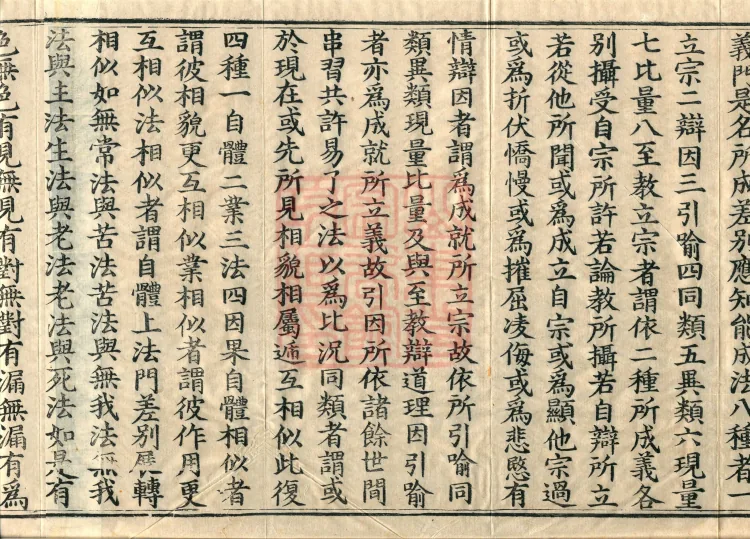 義門是名所成差別應知能成法八種者一
立宗二辯因三引喻四同類五異類六現量
七比量八至教立宗者謂依二種所成義各
別攝受自宗所許若論教所攝若自辯所立
若從他所聞或爲成立自宗或爲顯他宗過
或爲折伏憍慢或爲摧屈凌侮或爲悲愍有
情辯因者謂爲成就所立宗故依所引喻同
類異類現量比量及與至教辯道理因引喻
者亦爲成就所立義故引因所依諸餘世間
串習共許易了之法以爲比況同類者謂或
於現在或先所見相貌相屬遞互相似此復
四種一自體二業三法四因果自體相似者
謂彼相貌更互相似業相似者謂彼作用更
互相似法相似者謂自體上法門差別展轉
相似如無常法與苦法苦法與無我法無我
法與生法生法與老法老法與死法如是有
色無色有見無見有對無對有漏無漏有爲